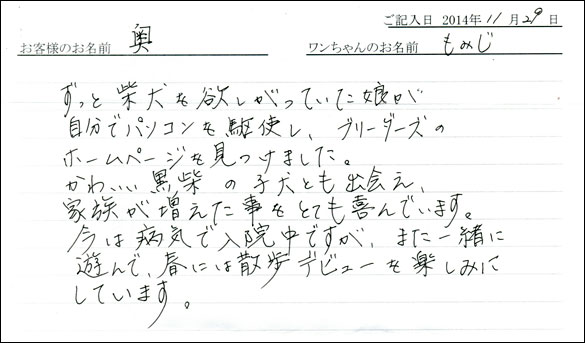 ご記入日 2014年 11月 29日
お客様のお名前 奥 ワンちゃんのお名前 もみじ
ずっと柴犬を欲しがっていた娘が
自分でパソコンを駆使し、ブリーダーズの
ホームページを見つけました。
かわいい黒柴の子犬とも出会え、
家族が増えた事をとても喜んでいます。
今は病気で入院中ですが、また一緒に
遊んで、春には散歩デビューを楽しみに
しています。